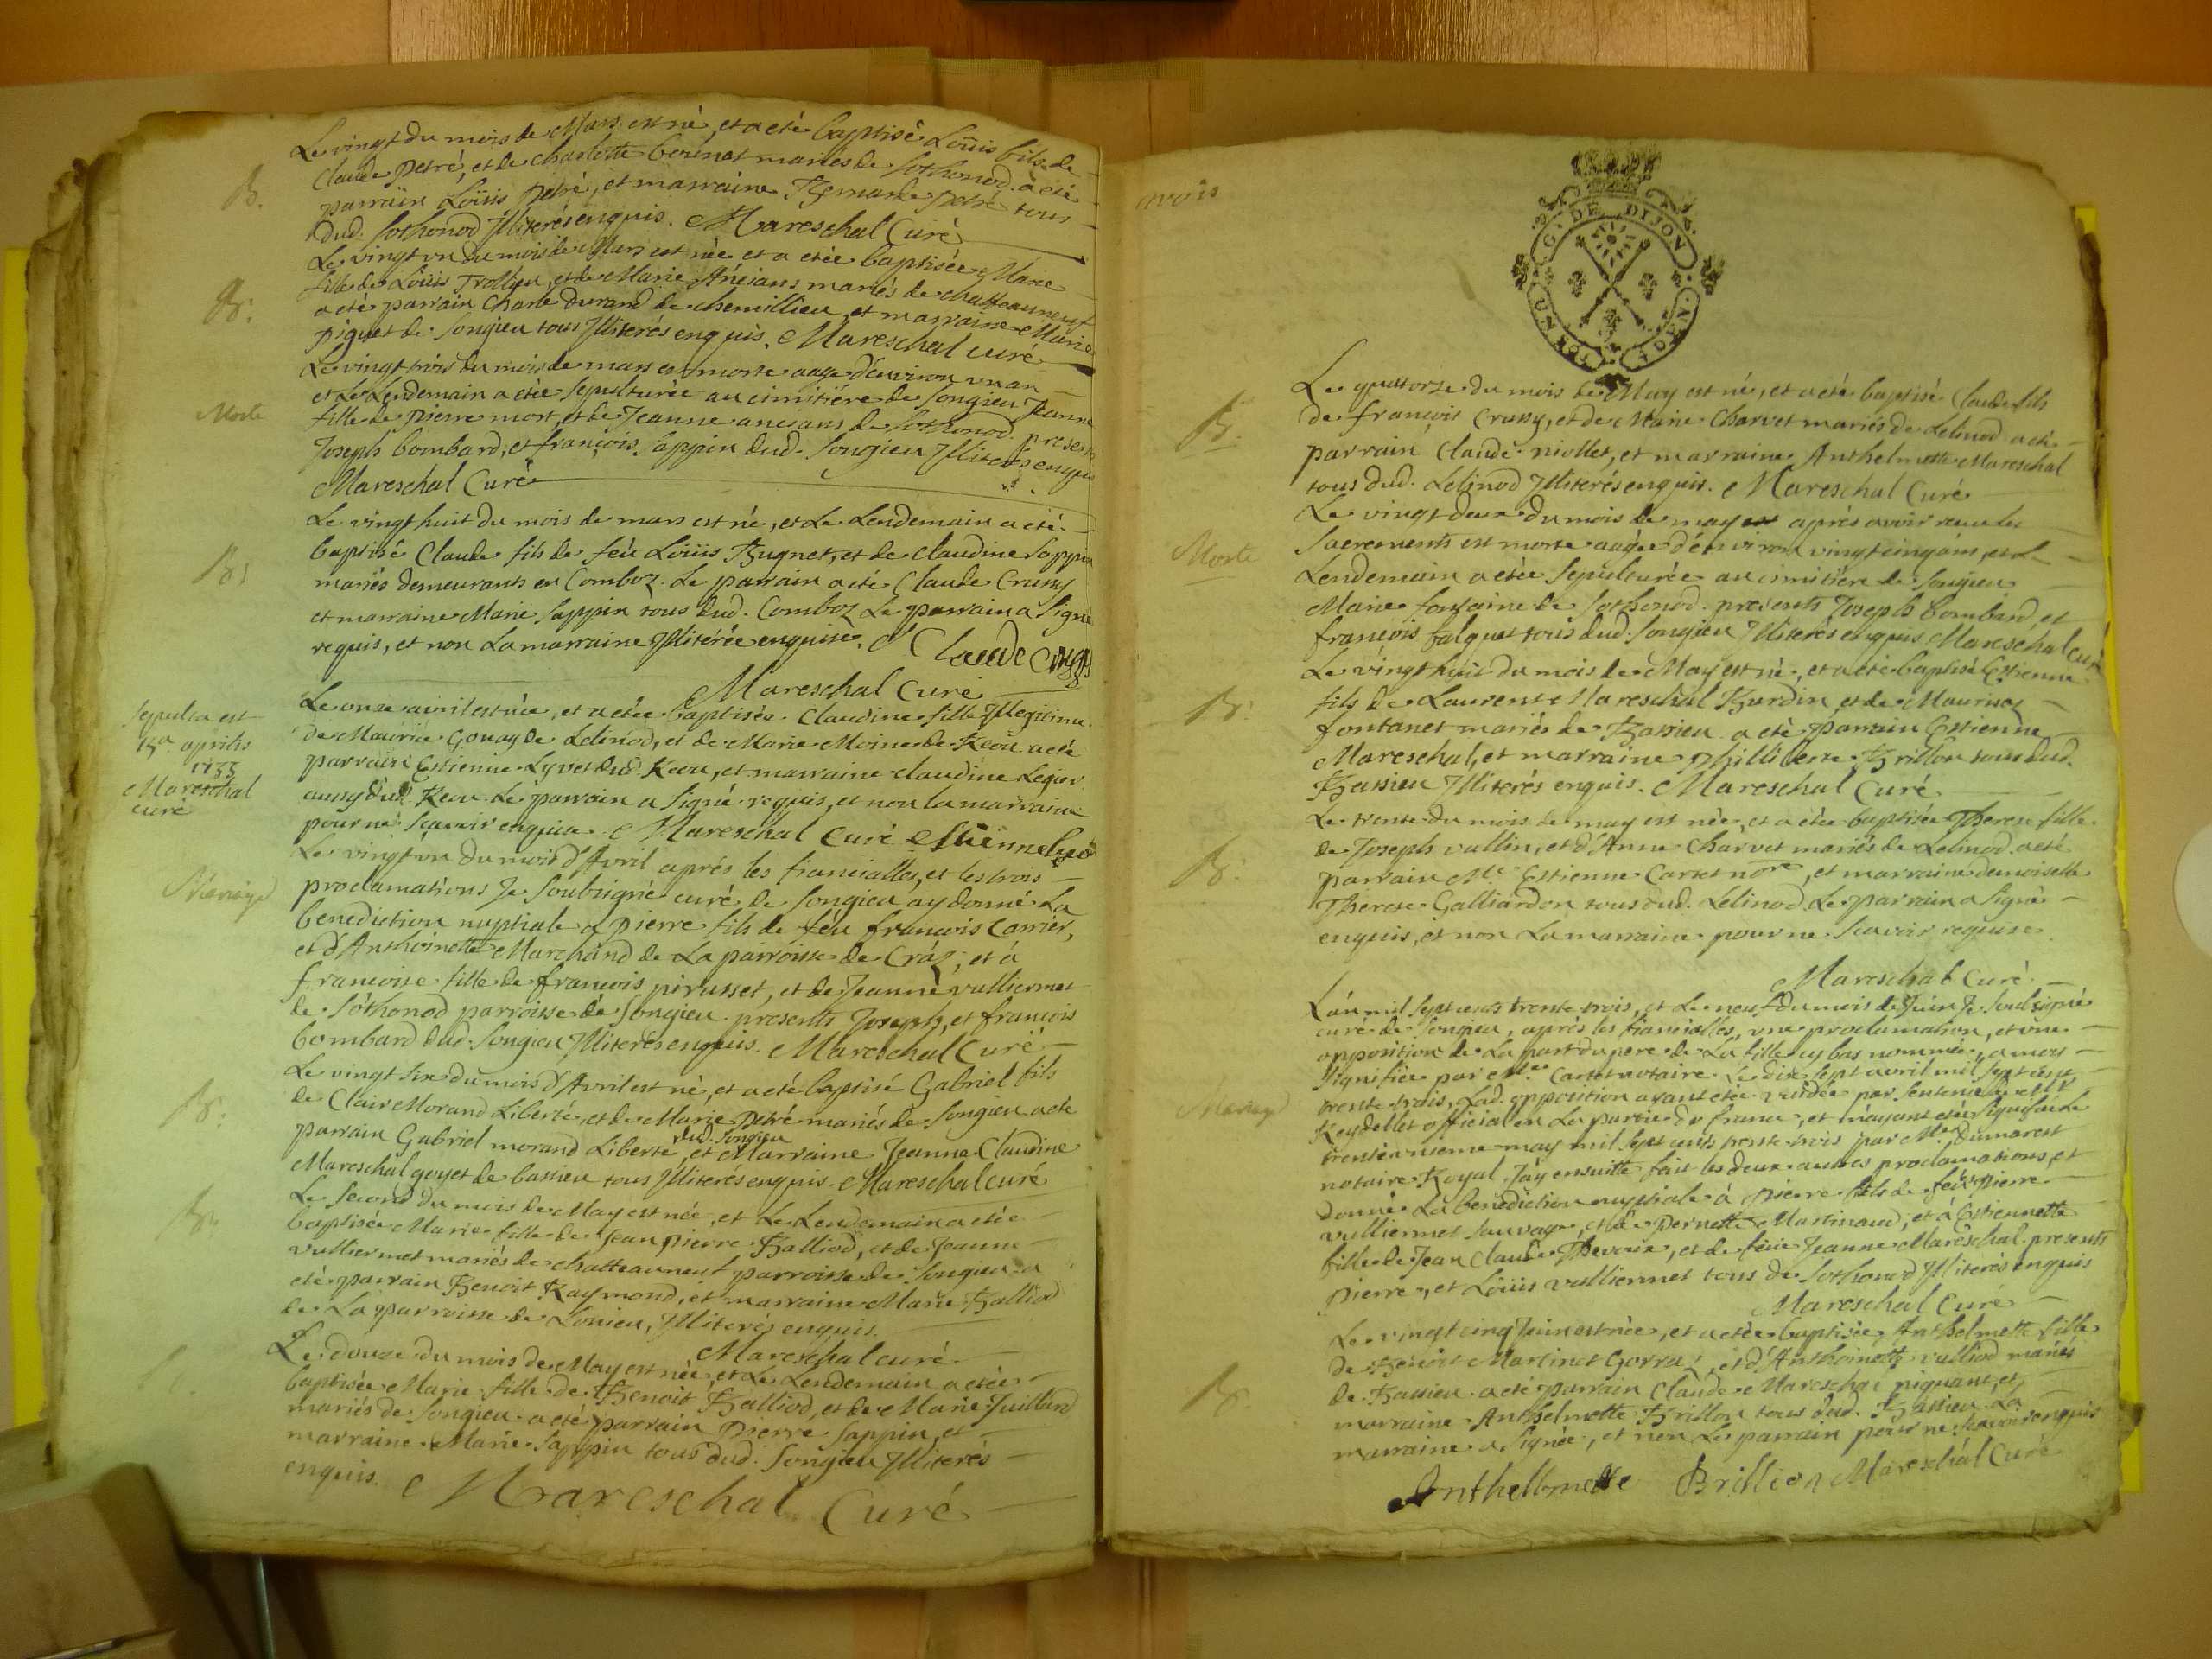 Le vingt du mois de Mars est né, et a eté baptisé Loüis fils de
Claude petré, et de Charlotte bounot mariés de Sothonod. a eté
B. parrain Loüis petré, et marraine petré tous
dud. Sothonod Illiterés enquis. Mareschal Curé
Le vingt un du mois de Mars est née et a etée baptisée Marie
fille de Loüis Trollieu, et de Marie Anesans mariés de chatteauneuf
B. a eté parrain Charle durand de chemillieu, et marraine Marie
piguet de Songieu tous Illiterés enquis. Mareschal curé
Le vingt trois du mois de mars est morte aage d'environ un an
et Le Lendemain a etée sepulturée au cimitiére de Songieu Jeanne
Morte fille de pierre mort, et de Jeanne anesans de Sothonod. presents
Joseph bombard, et françois Sappin dud. Songieu Illiterés enquis
Mareschal Curé
Le vingt huit du mois de mars est né, et Le Lendemain a eté
baptisé Claude fils de feu Loüis Hugnet, et de Claudine Sappin
B. mariés demeurants en Comboz. Le parrain a eté Claude Crussy
et marraine Marie Sappin tous dud. Comboz Le parrain a Signé
requis, et non La marraine Illitérée enquise. Claude
Mareschal Curé
Le onze avril est née, et a etée baptisée Claudine fille Illegitime
Sepulta est
15a aprilis
1733
Mareschal
curé
de Maurice Gouay de Lelinod, et de Marie Moine de Keou a eté
parrain Estienne Lyvet dud. Keou, et marraine Claudine Legier
aussy dud. Keou. Le parrain a Signé requis, et non la marraine
pour ne Scavoir enquise. Mareschal Curé
Le vingt un du mois d'Avril aprés les fiancialles, et les trois
Mariage proclamations Je Soubsigné curé de Songieu ay donné La
benediction nuptiale a pierre fils de feu francois Carrier,
et d'Anthoinette Marchand de La parroisse de Cráz, et á
francoise fille de francois pirusset, et de Jeanne vulliermet
de Sothonod parroisse de Songieu. presents Joseph, et francois
bombard dud. Songieu Illiterés enquis. Mareschal Curé
Le vingt six du mois d'Avril est né, et a eté baptisé Gabriel fils
B. de Clair Morand Liberté, et de Marie petré mariés de Songieu a eté
dud. Songieu
parrain Gabriel morand Liberté, et Marraine Jeanne Claudine
Mareschal goyet de bassieu tous Illiterés enquis. Mareschal curé
Le Second du mois de May est née, et Le Lendemain a etée
B. baptisée Marie fille de Jean pierre Balliod, et de Jeanne
vulliermet mariés de chatteauneuf parroisse de Songieu. a
eté parrain Benoit Raymond, et marraine Marie Balliod
de La parroisse de Lonieu, Illiterés enquis.
Mareschal curé
Le douze du mois de May est née, et Le Lendemain a etée
baptisée Marie fille de Benoit Balliod, et de Marie Juilland
mariés de Songieu. a eté parrain Pierre Sappin, et
marraine Marie Sappin tous dud. Songieu Illiterés
enquis. Mareschal Curé
G. DE DIJON
Le quatorze du mois de May est né, et a eté baptisé Claude fils
B. de françois Crussy, et de Marie Charvet mariés de Lelinod. a eté
parrain Claude niollet, et marraine Anthelmette Mareschal
tous dud. Lelinod Illiterés enquis. Mareschal Curé
Le vingt deux du mois de may aprés avoir receu les
Morte Sacrements est morte aagée d'environ vingt cinq ans, et Le
Lendemain a etée Sepulturée au cimitiére de Songieu
Marie fontaine de Sothonod. presents Joseph bombard, et
françois falquet tous dud. Songieu Illiterés enquis Mareschal Curé
Le vingt huit du mois de May est né, et a eté baptisé Estienne
B. fils de Laurent Mareschal Burdin, et de Maurise
fontanet mariés de Bassieu. a eté parrain Estienne
Mareschal, et marraine Phillibete Brillon tous dud.
Bassieu Illiterés enquis. Mareschal Curé
Le trente du mois de may est née, et a etée baptisée Therese fille
B. de Joseph vullin, et d'Anne Charvet mariés de Lelinod. a eté
parrain Me Estienne Cartet nore, et marraine demoiselle
Therese Galliardon tous dud. Lelinod. Le parrain a Signé
enquis, et non La marraine pour ne Scavoir requise
Mareschal Curé
L'an mil sept cents trente trois, et Le neuf du mois de Juin Je Soubsigné
curé de Songieu, aprés les fiancialles, une proclamation, et une
opposition de La part du pere de La fille cy bas nommée, a moy
Signifiée par Me Cartet notaire Le dix sept avril mil sept cents
Mariage trente trois, Lad. opposition ayant etée vuidée par Sentence de Mr
Reydellet official en La partie de france, et m'ayant etée Signifiée Le
trente unieme may mil sept cents trente trois par Me Dumarest
notaire Royal. J'ay ensuitte fait les deux autres proclamations, et
donné La benediction nuptiale á Pierre fils de feu Pierre
vulliermet Sauvage, et de Pernette Martinaud, et á Estiennette
fille de Jean Claude Thevenin, et de feue Jeanne Mareschal. presents
pierre, et Loüis vulliermet tous de Sothonod Illiterés enquis
Mareschal Curé
Le vingt cinq Juin est née, et a etée baptisée Anthelmette fille
de Benoit Martinet Gorraz, et d'Anthoinette vulliod mariés
B. de Bassieu. a eté parrain Claude Mareschal piquant, et
marraine Anthelmette Brillon tous dud. Bassieu. La
marraine a Signée, et non Le parrain pour ne Scavoir enquis
Anthelbmette Brillion Mareschal Curé